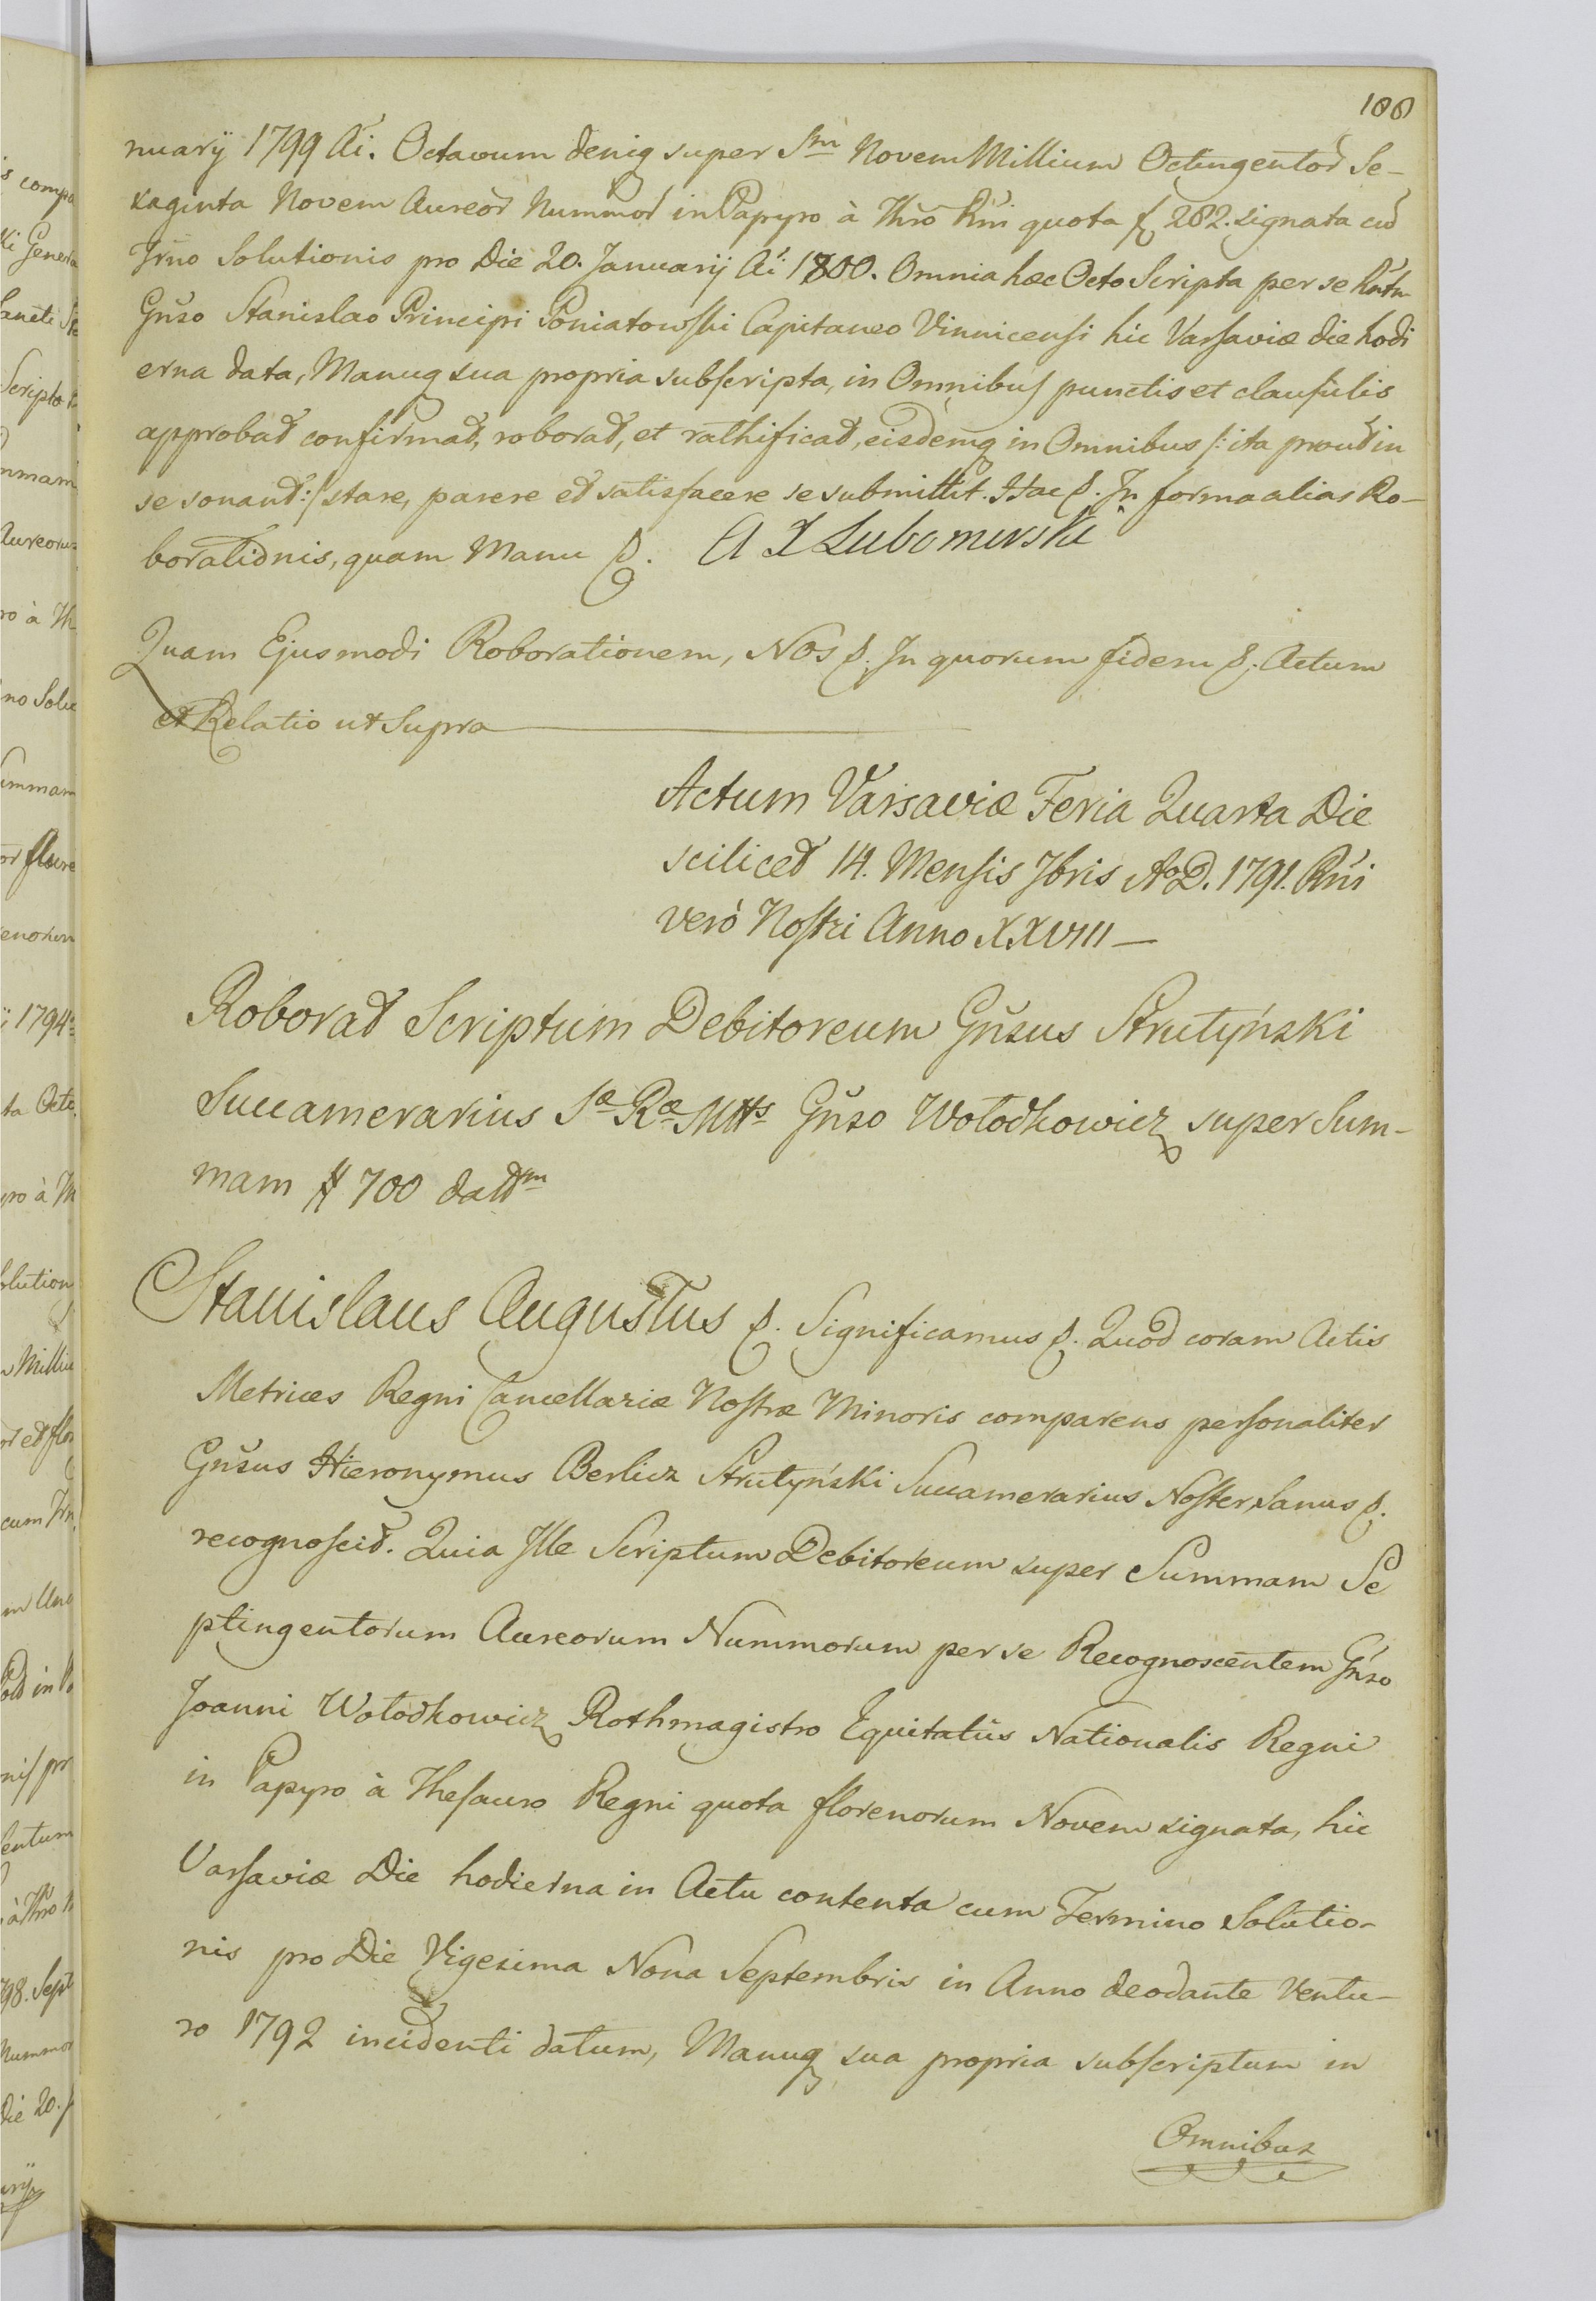 106
nuarÿ 1799 Ai. Octavum deniq super Sm̄ Novem Millium Octingentor Se-
xaginta Novem Aureor Nummor in Papyro à Thro Rni quota f 282. signata cu
Trno Solutionis pro Die 20. Januarÿ Ai 1800. Omnia hæc Octo Scripta per se Rntm
Gnso Stanislao Principi Poniatowski Capitaneo Vinnicensi hic Varsaviæ die hodi
erna data, Manuq sua propria subscripta, in Omnibus punctis et clausulis
approbat confirmat, roborat, et rathificat, eisdemq in Omnibus /: ita prout in
se sonant :/ stare, parere et satisfacere se submittit. Hac p. In forma alias Ro-
borationis, quam Manu p. A X Lubomirski
Quam Ejusmodi Roborationem, Nos p. In quorum fidem p. Actum
et Relatio ut Supra
Actum Varsaviæ Feria Quarta Die
scilicet 14. Mensis 7bris Ao D. 1791. Rni
verò Nostri Anno XXVIII —
Roborat Scriptum Debitoreum Gnsus Strutyński
Succamerarius Sæ Ræ Mttis Gnso Wołodkowicz super Sum-
mam # 700 dattm
Stanislaus Augustus p. Significamus p. Quod coram Actis
Metrices Regni Cancellariæ Nostræ Minoris comparens personaliter
Gnsus Hieronymus Berlicz Strutyński Succamerarius Noster, sanus p.
recognoscit. Quia Ille Scriptum Debitoreum super Summam Se
ptingentorum Aureorum Nummorum per se Recognoscentem Gnso
Joanni Wołodkowicz Rothmagistro Equitatûs Nationalis Regni
in Papyro à Thesauro Regni quota florenorum Novem signata, hic
Varsaviæ Die hodierna in Actu contenta cum Termino Solutio-
nis pro Die Vigesima Nona Septembris in Anno deodante Ventu-
ro 1792 incidenti datum, Manuq sua propria subscriptum in
Omnibus